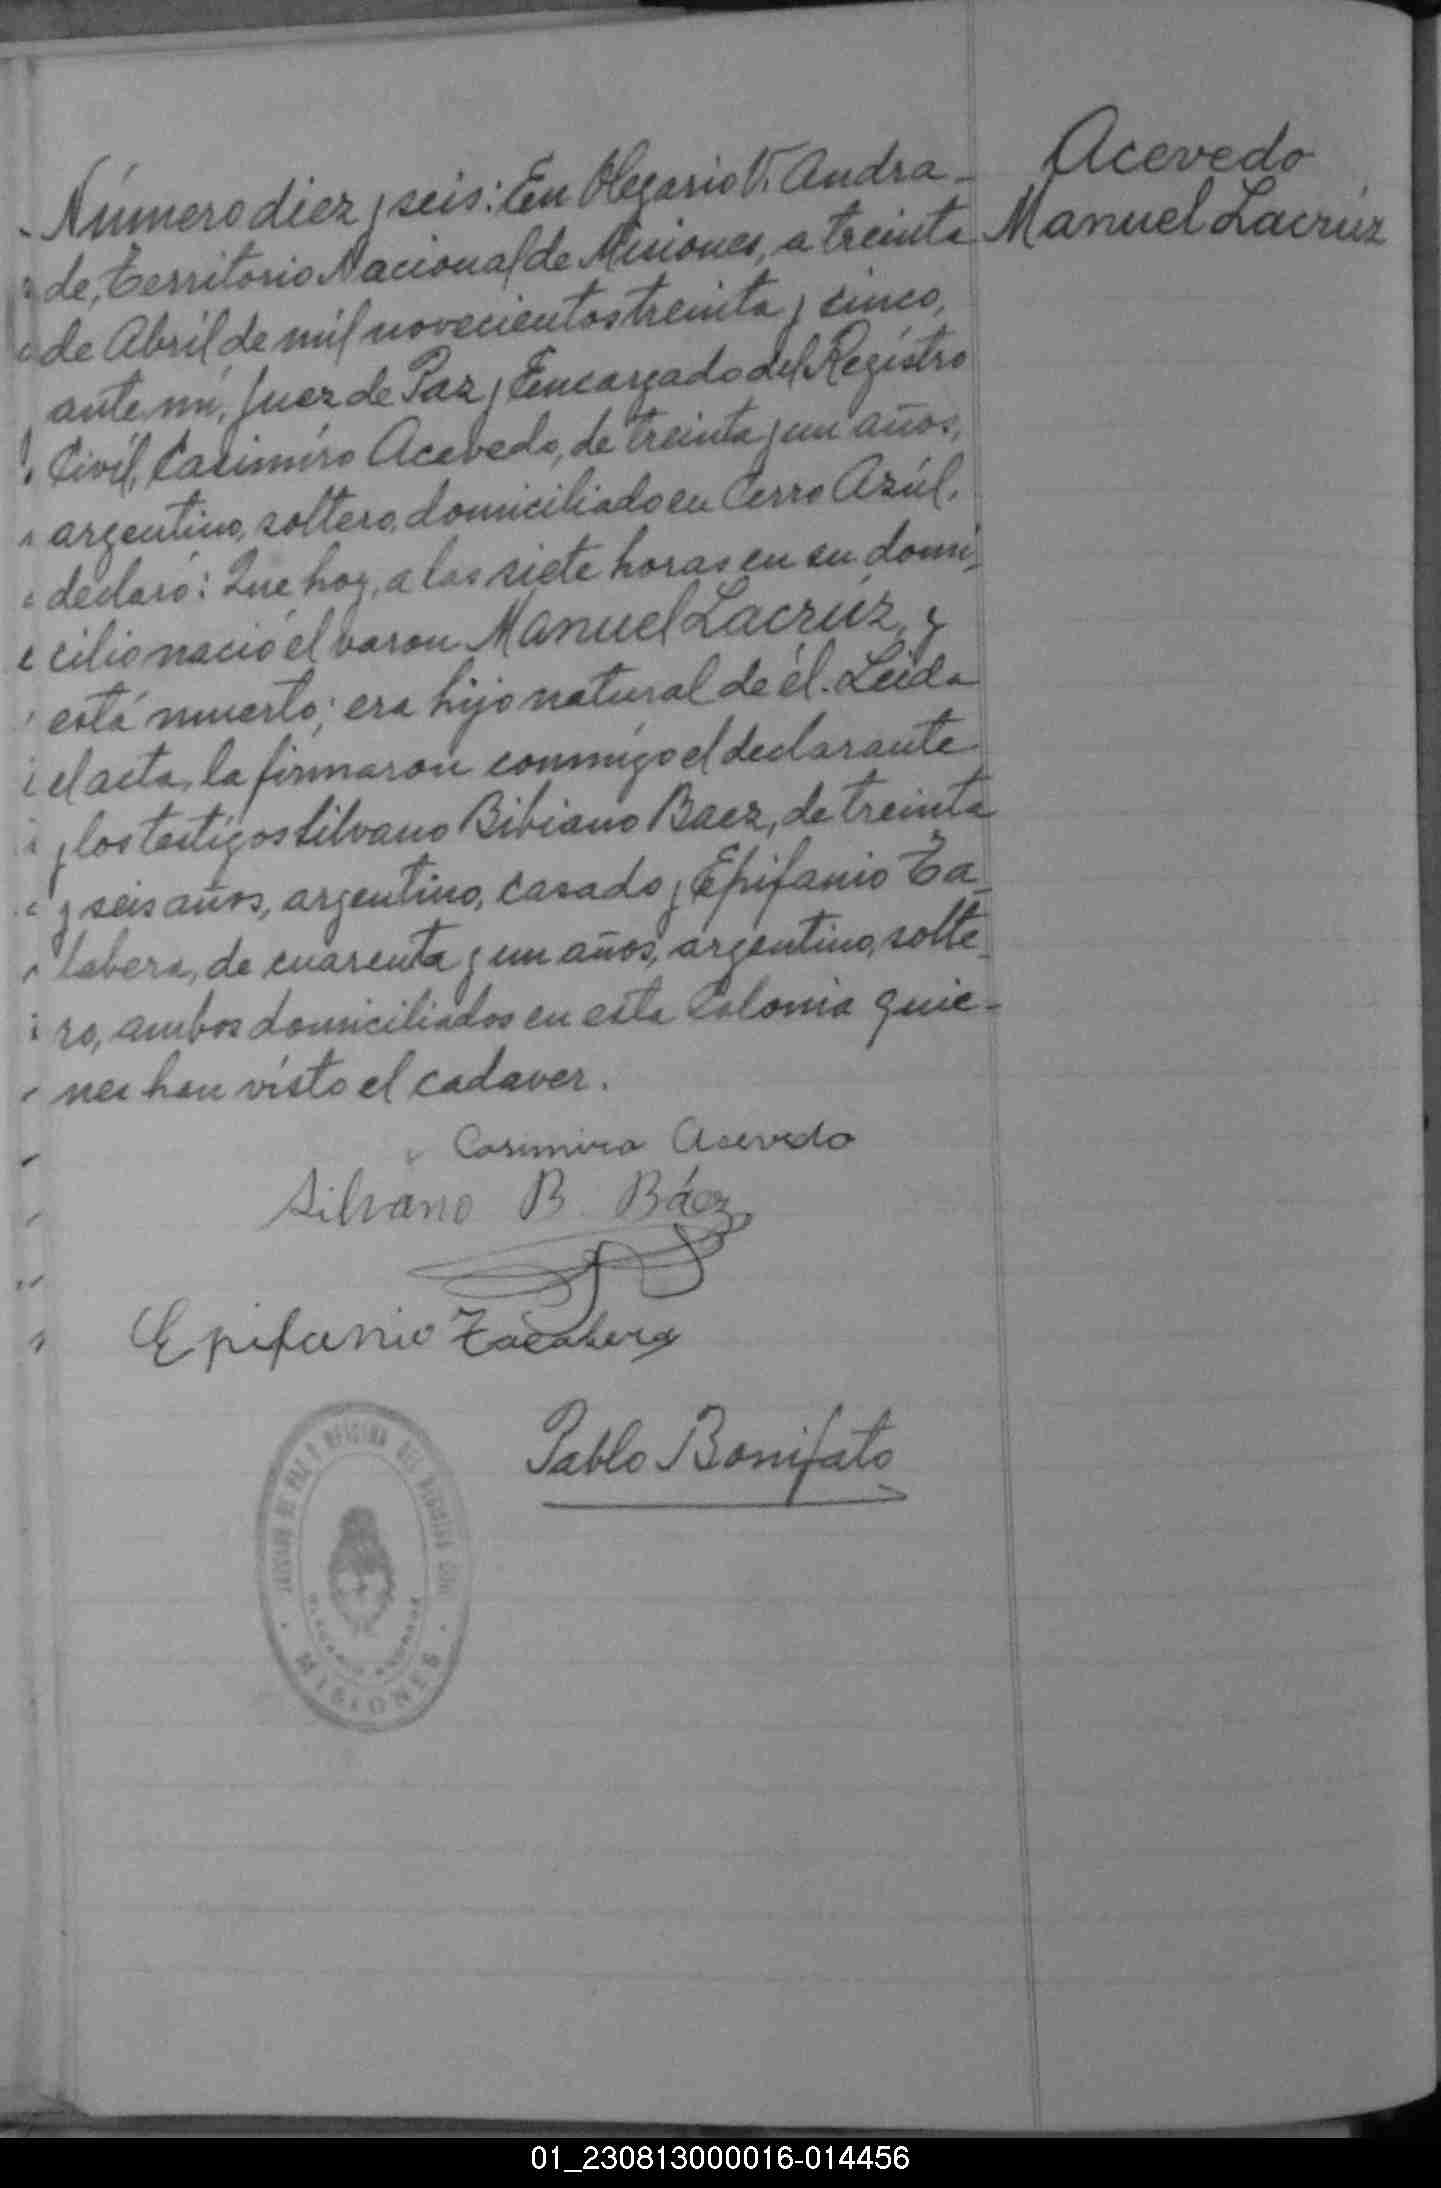 Número diez y seis: En Olegario V. Andra-
de, Territorio Nacional de Misiones, a treinta
de Abril de mil novecientos treinta y cinco,
ante mí, Juez de Paz y Encargado del Registro
Civil, Casimiro Acevedo, de treinta y un años,
argentino, soltero, domiciliado en Cerro Azúl,
declaró: Que hoy, a las siete horas en su domi-
cilio nació el varon Manuel Lacrúz, y
está muerto; era hijo natural de él. Leída
el acta, la firmaron conmigo el declarante
y los testigos Silvano Bibiano Baez, de treinta
y seis años, argentino, casado y Epifanio Ta-
labera, de cuarenta y un años, argentino, solte-
ro, ambos domiciliados en esta Colonia quie-
nes han visto el cadaver.
Acevedo
Manuel Lacrúz
Casimiro Acevedo
Silvano B. Báez
Epifanio
Pablo Bonifato
JUZGADO DE PAZ Y OFICINA DEL REGISTRO CIVIL
OLEGARIO ANDRADE
MISIONES
01_230813000016-014456